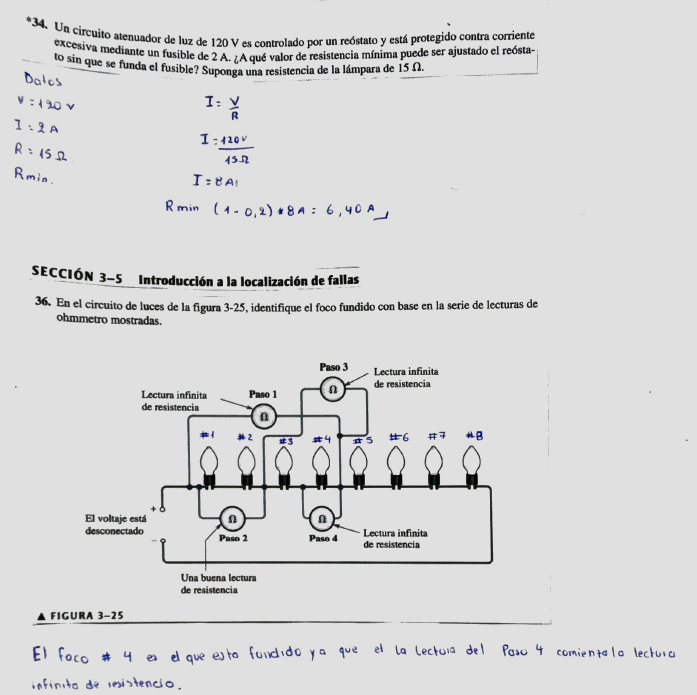 *34. Un circuito atenuador de luz de 120 V es controlado por un reóstato y está protegido contra corriente
excesiva mediante un fusible de 2 A. ¿A qué valor de resistencia mínima puede ser ajustado el reósta-
to sin que se funda el fusible? Suponga una resistencia de la lámpara de 15 Ω.
Datos
V = 120 V
I = 2 A
R = 15 Ω
Rmin.
I = V
R
I = 120V
15Ω
I = 8 A
R min (1 - 0,2) * 8 A = 6,40 A
SECCIÓN 3–5 Introducción a la localización de fallas
36. En el circuito de luces de la figura 3-25, identifique el foco fundido con base en la serie de lecturas de
ohmmetro mostradas.
Paso 3
Lectura infinita
de resistencia
Ω
Lectura infinita
de resistencia
Paso 1
Ω
#1 #2 #3 #4 #5 #6 #7 #8
+
El voltaje está
desconectado
–
Ω
Paso 2
Ω
Paso 4
Lectura infinita
de resistencia
Una buena lectura
de resistencia
▲ FIGURA 3–25
El foco # 4 es el que esta fundido ya que el la lectura del Paso 4 comienta la lectura
infinita de resistencio.